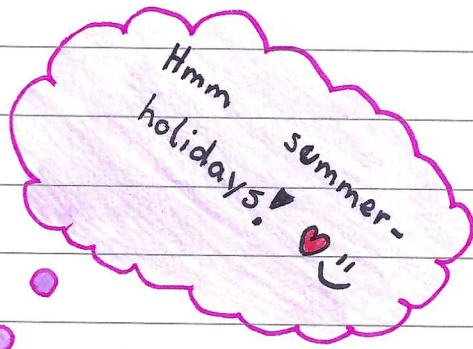 Hmm summer-
holidays! ❤ ☺